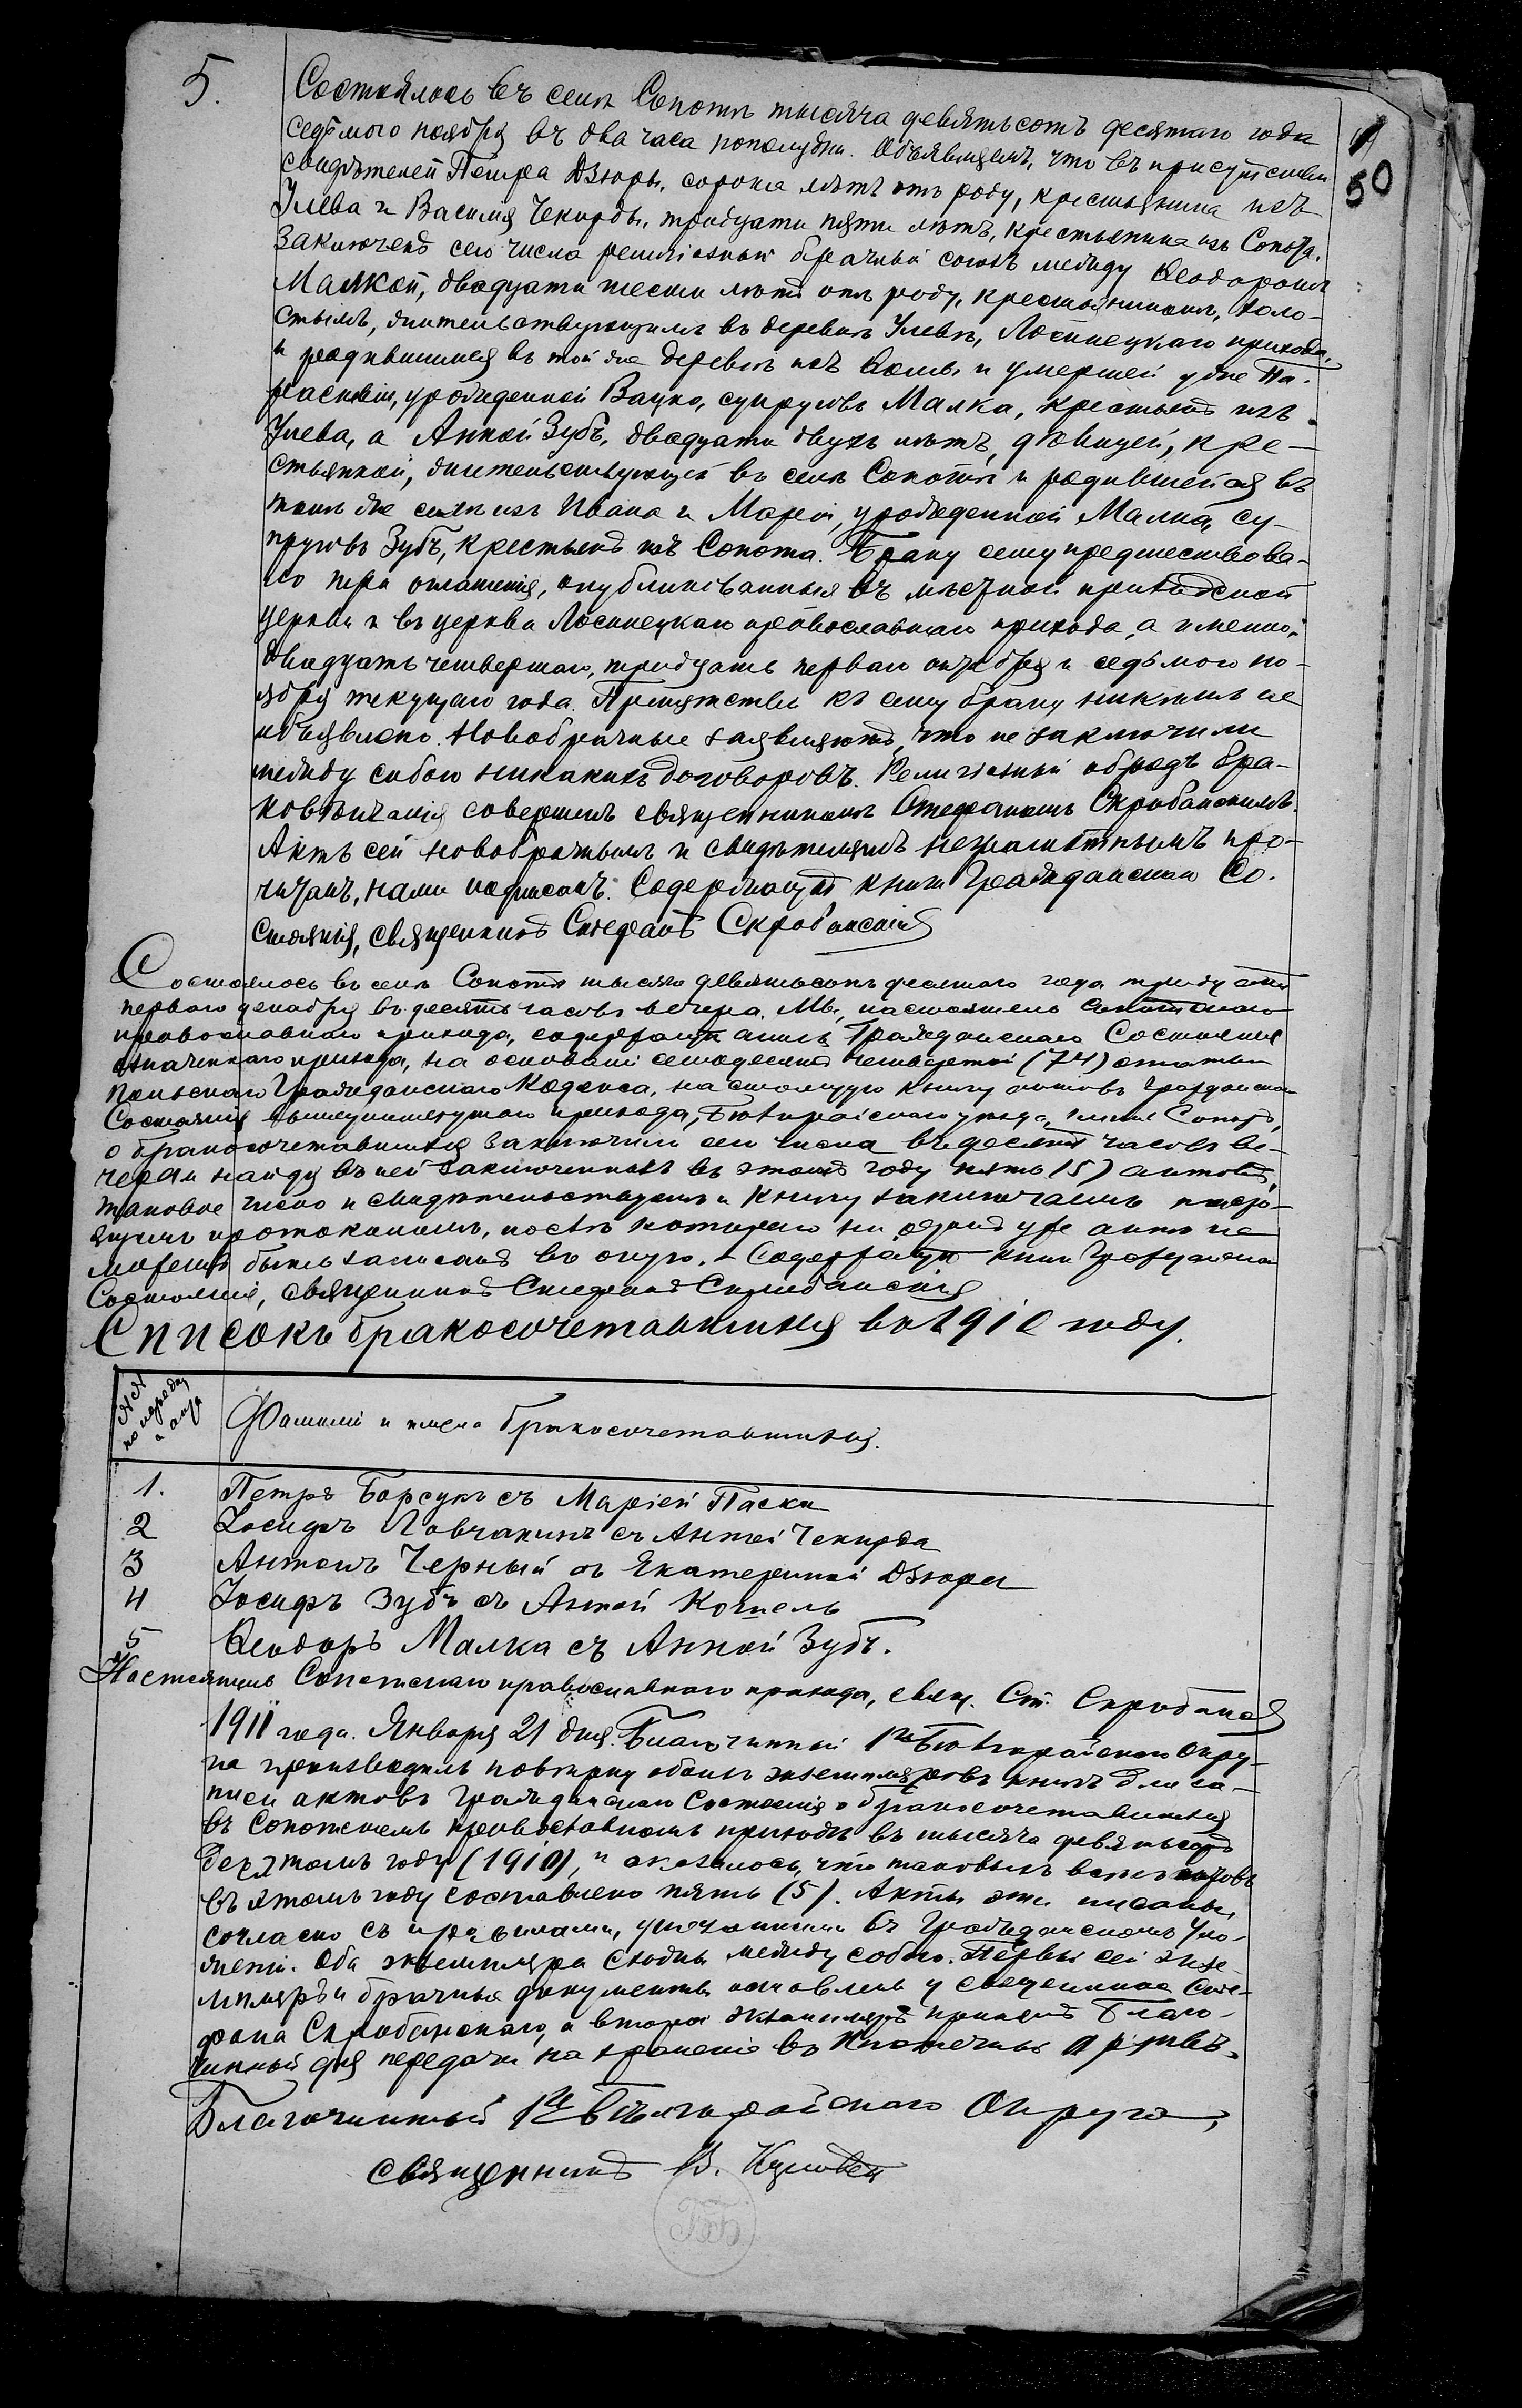 5.
Состоялось въ селѣ Сопотѣ тысяча девятьсотъ десятаго года
1
50
седьмого ноября въ два часа пополудни. Объявляемъ, что въ присутствіи
свидѣтелей Петра Дзюры, сорока лѣтъ отъ роду, крестьянина изъ
Улева и Василія Чекирды, тридцати пяти лѣтъ, крестьянина изъ Сопота,
заключенъ сего числа религіозный брачный союзъ между Ѳеодоромъ
Малкой, двадцати шести лѣтъ отъ роду, крестьяниномъ, холо-
стымъ, жительствующимъ въ деревнѣ Улевѣ, Лосинецкаго прихода,
и родившимся въ той же деревнѣ изъ Ѳомы и умершей уже Па-
раскевіи, урожденной Вацко, супруговъ Малка, крестьянъ изъ
Улева, а Анной Зубъ, двадцати двухъ лѣтъ, дѣвицей, кре-
стьянкой, жительствующей въ селѣ Сопотѣ и родившейся въ
томъ же селѣ изъ Ивана и Маріи, урожденной Малка, су-
пруговъ Зубъ, крестьянъ изъ Сопота. Браку сему предшествова-
ло три оглашенія, опубликованныя въ мѣстной приходской
церкви и въ церкви Лосинецкаго православнаго прихода, а именно:
двадцать четвертаго, тридцать перваго октября и седьмого но-
ября текущаго года. Препятствій къ сему браку никѣмъ не
объявлено. Новобрачные заявляютъ, что не заключили
между собою никакихъ договоровъ. Религіозный обрядъ бра-
ковѣнчанія совершенъ священникомъ Стефаномъ Скробанскимъ.
Актъ сей новобрачнымъ и свидѣтелямъ неграмотнымъ про-
читанъ, нами подписанъ. Содержащій книги Гражданскаго Со-
стоянія, священникъ Стефанъ Скробанскій
Состоялось въ селѣ Сопотѣ тысяча девятьсотъ десятаго года тридцать
перваго декабря въ десять часовъ вечера. Мы, настоятель Сопотскаго
православнаго прихода, содержащій акты Гражданскаго Состоянія
означеннаго прихода, на основаніи семьдесятъ четвертой (74) статьи
Польскаго Гражданскаго Кодекса, настоящую книгу актовъ Гражданскаго
Состоянія вышеупомянутаго прихода, Бѣлгорайскаго уѣзда, гмины Сопотъ,
о бракосочетавшихся заключили сего числа въ десять часовъ ве-
чера и найдя въ ней заключенныхъ въ этомъ году пять (5) актовъ,
таковое число и свидѣтельствуемъ и книгу заключаемъ насто-
ящимъ протоколомъ, послѣ котораго ни одинъ уже актъ не
можетъ быть записанъ въ оную. Содержащій книги Гражданскаго
Состоянія, священникъ Стефанъ Скробанскій
Списокъ бракосочетавшихся въ 1910 году.
№№ по порядку и акта
Фамиліи и имена бракосочетавшихся.
1. Петръ Борсукъ съ Маріей Паска
2 Іосифъ Ловчакинъ съ Анной Чекирда
3 Антонъ Черный съ Екатериной Дзюра
4 Іосифъ Зубъ съ Анной Котель
5 Ѳеодоръ Малка съ Анной Зубъ.
Настоятель Сопотскаго православнаго прихода, свящ. Ст. Скробанскій
1911 года. Января 21 дня. Благочинный 1го Бѣлгорайскаго Окру-
га производилъ повѣрку обоихъ экземпляровъ книгъ для за-
писи актовъ Гражданскаго Состоянія о бракосочетавшихся
въ Сопотскомъ православномъ приходѣ въ тысяча девятьсотъ
десятомъ году (1910), и оказалось, что таковыхъ всего актовъ
въ этомъ году составлено пять (5). Акты эти писаны
согласно съ правилами, указанными въ Гражданскомъ Уло-
женіи. Оба экземпляра сходны между собою. Первый сей экзе-
мпляръ и брачные документы оставлены у священника Сте-
фана Скробанскаго, а второй экземпляръ принялъ Благо-
чинный для передачи на храненіе въ Ипотечный архивъ.
Благочинный 1го Бѣлгорайскаго Округа,
священникъ В.